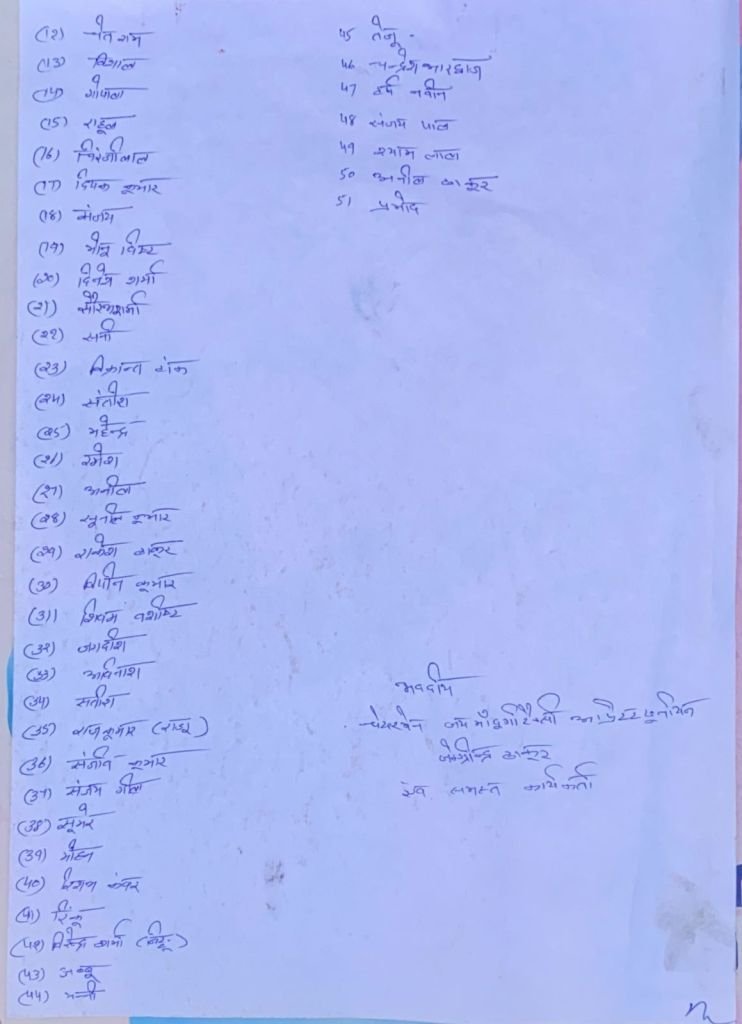 (12) चेतराम
(13) विशाल
(14) गोपाल
(15) राहुल
(16) चिरंजीलाल
(17) दिपक कुमार
(18) संजय
(19) मोनू
(20) दिनेश शर्मा
(21) शर्मा
(22) सनी
(23) विक्रान्त
(24) संतोश
(25) महेन्द्र
(26) रमेश
(27) अनील
(28) सुनील कुमार
(29) राकेश ठाकुर
(30) विपीन कुमार
(31) शिवम वशीष्ट
(32) जगदीश
(33) अविनाश
(34) सतीश
(35) राजकुमार (राजू)
(36) संजीव कुमार
(37) संजय गील
(38) सुमेर
(39) मोहन
(40) कंवर
(41) रिंकू
(42) विरेन्द्र शर्मा
(43) जब्बू
(44) मन्नी
45 तेजू.
46 चन्द्रेश भारद्वाज
47 हर्ष नवीन
48 संजय पाल
49 श्याम लाल
50 अनील ठाकुर
51 प्रमोद
भवदीय
चेयरमैन जय माँ दुर्गा टैक्सी आप्रेटर यूनीयन
ठाकुर
एंव समस्त कार्यकर्ता